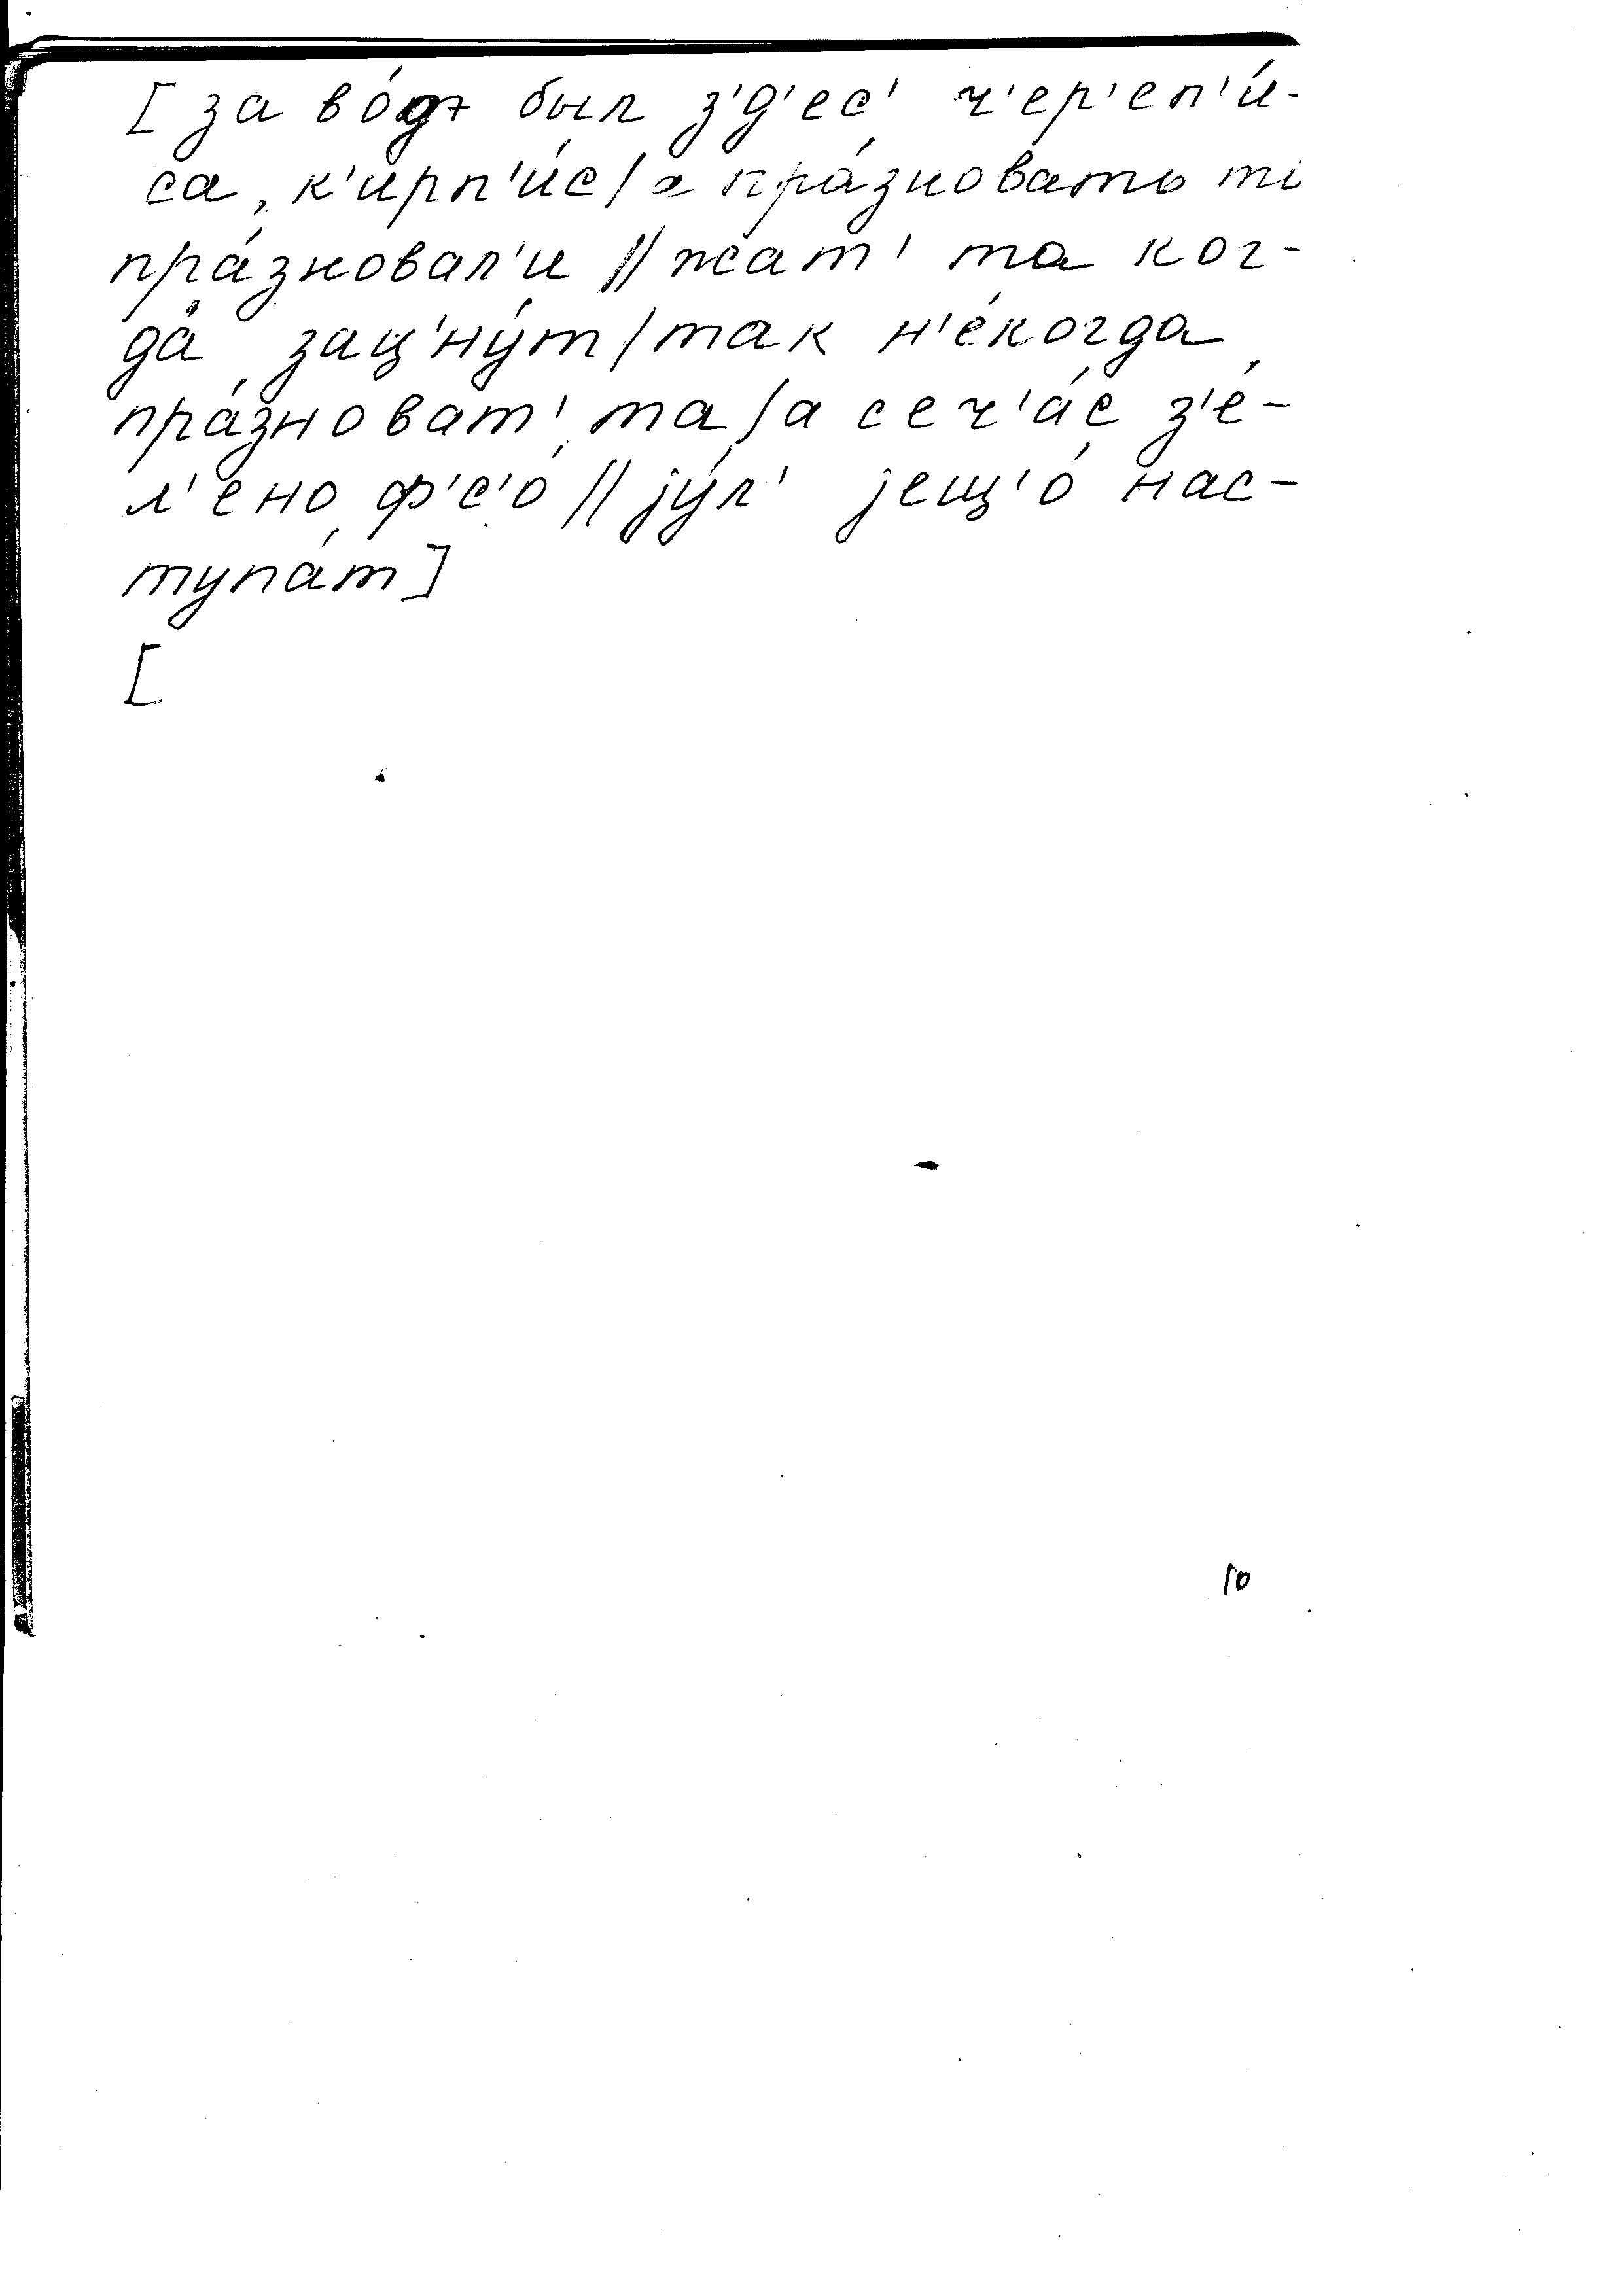 [за во́дт был з'д'ес' ч'ер'еп'и́-
са, к'ирп'и́с/а пра́зновать
пра́зновал'и // жат' та ког-
да́ зац'ну́т/так н'е́когда
пра́зноват' та/а сеч'а́с з'е́-
л'ено ф'с'о́ // jу́л' jещ'о́ нас-
тупа́т]
[
10